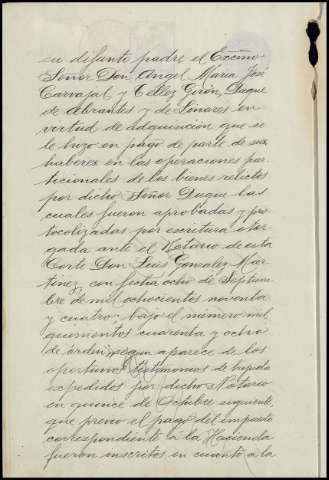 su difunto padre el Excmo
Señor Don Angel Maria José
Carvajal y Tellez Girón, Duque
de Abrantes y de Linares en
virtud de adquisición que se
le hizo en pago de parte de sus
haberes en las operaciones par
ticionales de los bienes relictos
por dicho Señor Duque las
cuales fueron aprobadas y pro
tocolizadas por escritura otor
gada ante el Notario de esta
Corte Don Luis Gonzalez Mar
tinez, con fecha ocho de Septiem
bre de mil ochocientos noventa
y cuatro, bajo el número mil
quinientos cuarenta y ocho
de orden, segun aparece de los
oportunos testimonios de hijuela
expedidos por dicho Notario
en quince de Octubre siguiente,
que previo el pago del impuesto
correspondiente á la Hacienda
fueron inscritos en cuanto á la